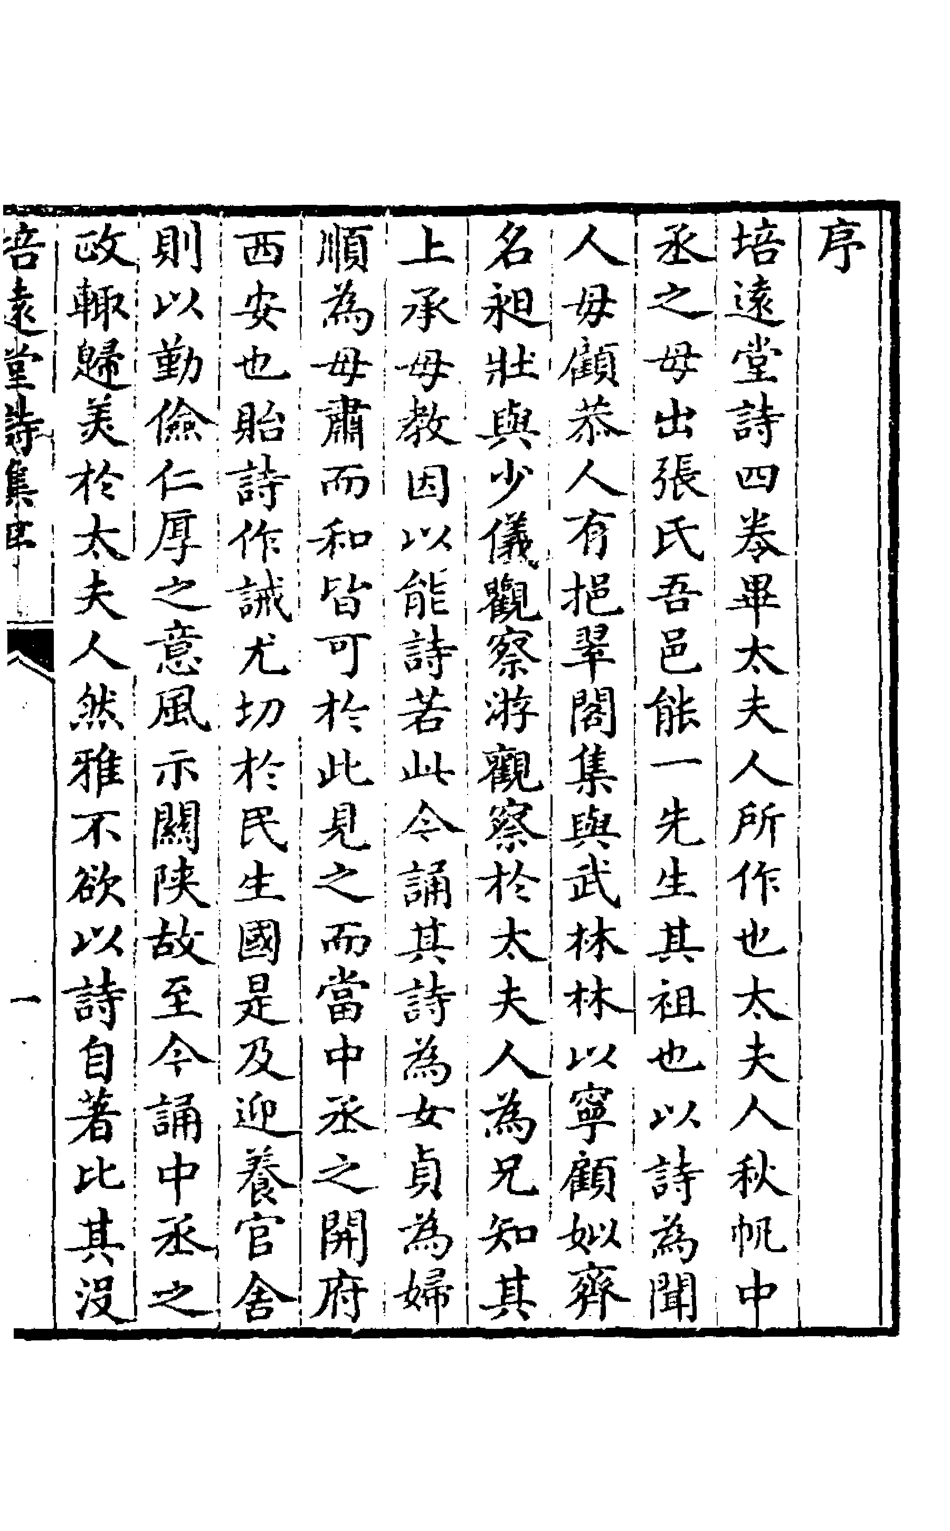 序
培遠堂詩四卷畢太夫人所作也太夫人秋帆中
丞之母出張氏吾邑能一先生其祖也以詩為聞
人母顧恭人有挹翠閣集與武林林以寧顧姒齊
名昶壯與少儀觀察游觀察於太夫人為兄知其
上承母教因以能詩若此今誦其詩為女貞為婦
順為母肅而和皆可於此見之而當中丞之開府
西安也貽詩作誡尤切於民生國是及迎養官舍
則以勤儉仁厚之意風示關陝故至今誦中丞之
政輒歸美於太夫人然雅不欲以詩自著比其沒
培遠堂詩集序
一